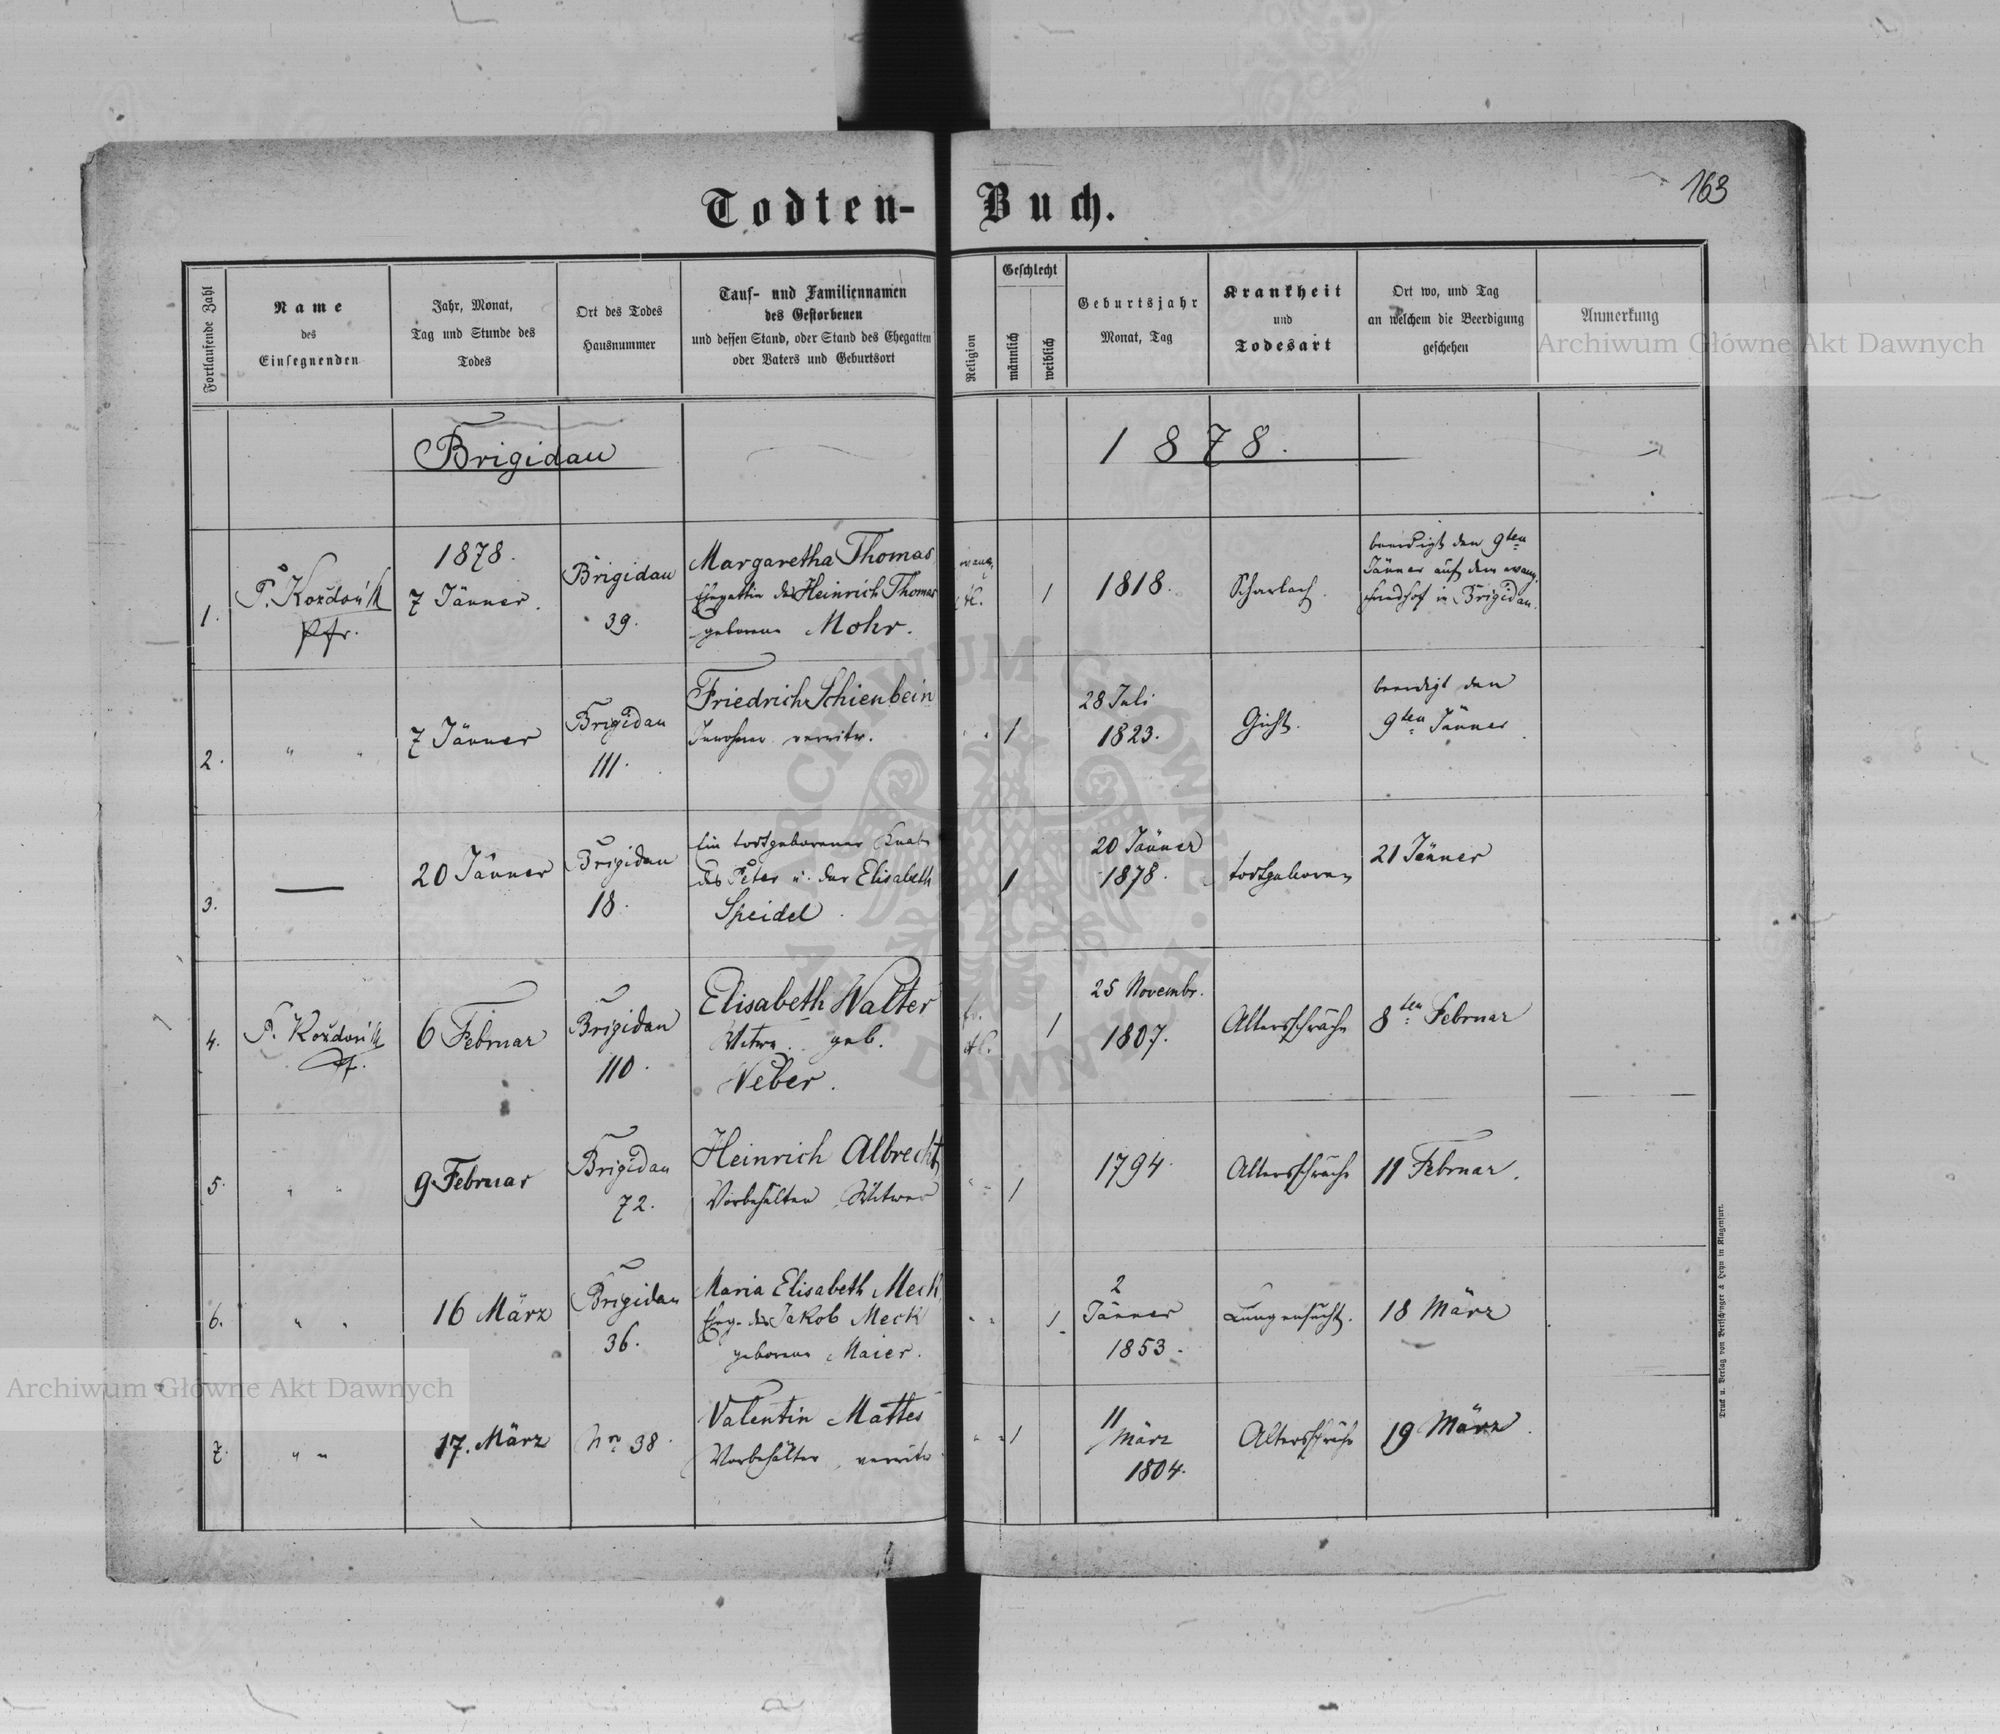 163
Todten-Buch.
Fortlaufende Zahl
Name
des
Einsegnenden
Jahr, Monat,
Tag und Stunde des
Todes
Ort des Todes
Hausnummer
Tauf- und Familiennamen
des Gestorbenen
und dessen Stand, oder Stand des Ehegatten
oder Vaters und Geburtsort
Religion
Geschlecht
männlich
weiblich
Geburtsjahr
Monat, Tag
Krankheit
und
Todesart
Ort wo, und Tag
an welchem die Beerdigung
geschehen
Anmerkung
Brigidau
1878.
1.
P. Koždoń
Pfr.
1878.
7 Jänner.
Brigidau
39.
Margaretha Thomas
Ehegattin des Heinrich Thomas
geborene Mohr.
evang.
1
1818.
Scharlach.
beerdigt den 9ten
Jänner auf dem evang.
Friedhof in Brigidau.
2.
" "
7 Jänner
Brigidau
111.
Friedrich Schienbein
Inwohner verwitw.
" "
1
28 Juli
1823.
Gicht.
beerdigt den
9ten Jänner
3.
—
20 Jänner
Brigidau
18.
Ein todtgeborener Knabe
des Peter u. der Elisabeth
Speidel.
1
20 Jänner
1878.
todtgeboren
21 Jänner
4.
P. Koždoń
Pf.
6 Februar
Brigidau
110.
Elisabeth Walter
Witwe geb.
Weber.
1
25 Novembr.
1807.
Altersschwäche
8ten Februar
5.
" "
9 Februar
Brigidau
72.
Heinrich Albrecht
Vorbehälter Witwer
" "
1
1794.
Altersschwäche
11 Februar.
6.
" "
16 März
Brigidau
36.
Maria Elisabeth Meck
Eheg. des Jakob Meck
geborene Maier.
" "
1
2
Jänner
1853.
Lungensucht.
18 März
7.
" "
17. März
Nro 38.
Valentin Mattes
Vorbehälter, verwitw.
" "
1
11
März
1804.
Altersschwäche
19 März.
Druck u. Verlag von Bertschinger & Heyn in Klagenfurt.
Archiwum Główne Akt Dawnych
Archiwum Główne Akt Dawnych
ARCHIWUM GŁÓWNE AKT DAWNYCH